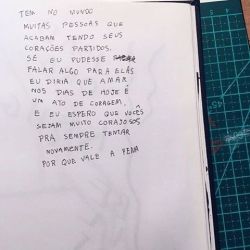 TEM NO MUNDO
MUITAS PESSOAS QUE
ACABAM TENDO SEUS
CORAÇÕES PARTIDOS.
SE EU PUDESSE
FALAR ALGO PARA ELAS
EU DIRIA QUE AMAR
NOS DIAS DE HOJE É
UM ATO DE CORAGEM,
E EU ESPERO QUE VOCÊS
SEJAM MUITO CORAJOSOS
PRA SEMPRE TENTAR
NOVAMENTE.
POR QUE VALE A PENA